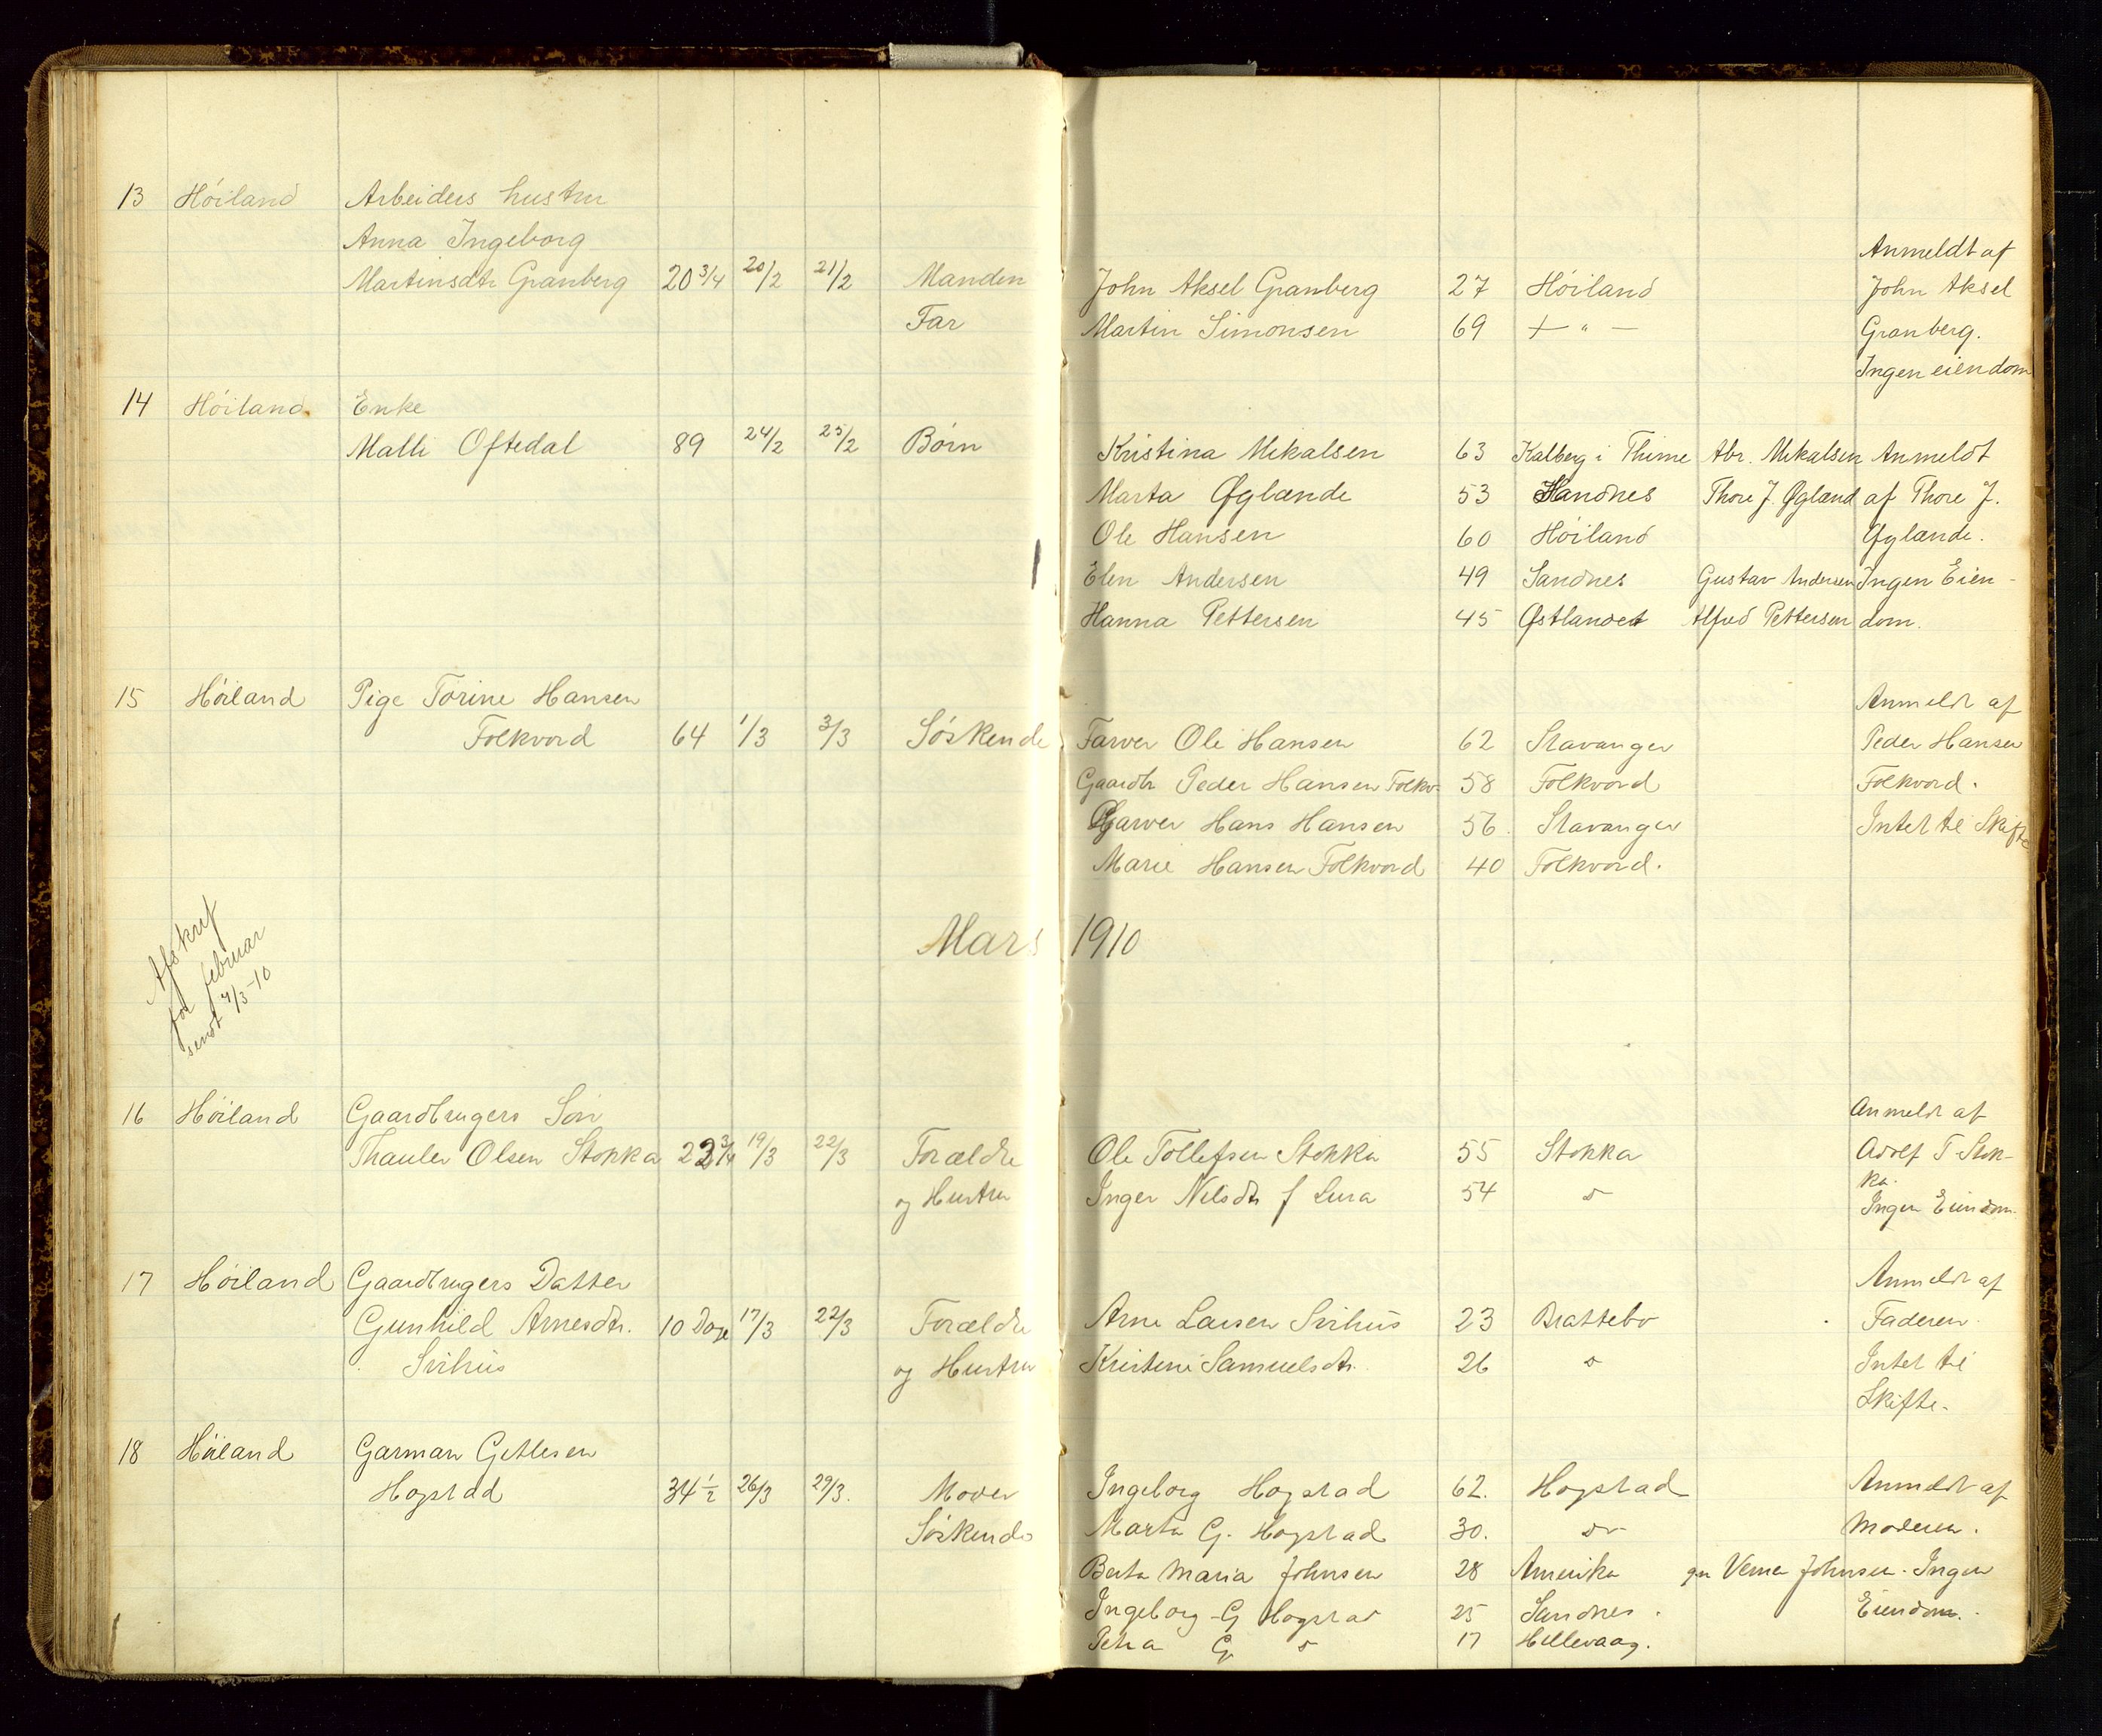 13 Höiland Arbeiders hustru
Anna Ingeborg
Anmeldt af
Martinsdtr Granberg 20 3/4 20/2 21/2 Manden John Aksel Granberg 27 Höiland John Aksel
Far Martin Simonsen 69 + " — Granberg.
Ingen eiendom
14 Höiland Enke
Malli Oftedal 89 24/2 25/2 Börn Kristina Mikalsen 63 Kalberg i Thime Abr. Mikalsen Anmeldt
Marta Øglænde 53 Sandnes Thore J. Øglænd af Thore J.
Ole Hansen 60 Höiland Øglænde.
Elen Andersen 49 Sandnes Gustav Andersen Ingen Eien-
Hanna Pettersen 45 Østlandet Alfred Pettersen dom.
15 Höiland Pige Torine Hansen Anmeldt af
Folkvord 64 1/3 3/3 Söskende Farver Ole Hansen 62 Stavanger Peder Hansen
Gaardbr Peder Hansen Folkv. 58 Folkvord Folkvord.
Garver Hans Hansen 56. Stavanger Intet til Skifte
Marie Hansen Folkvord 40 Folkvord.
Mars 1910
Afskrift
for februar
sendt 4/3-10
16 Höiland Gaardbrugers Sön Anmeldt af
Thauler Olsen Stokka 22 3/4 19/3 22/3 Forældre Ole Tollefsen Stokka 55 Stokka Adolf T Stok-
og Hustru Inger Nilsdtr f Lura 54 do ka.
Ingen Eiendom.
17 Höiland Gaardbrugers Datter Anmeldt af
Gunhild Arnesdtr. 10 Dage 17/3 22/3 Forældre Arne Larsen Svihus 23 Brattebo Faderen.
Svihus og Hustru Kristine Samuelsdtr. 26 do Intet til
Skifte.
18 Höiland Garman Getlesen
Hogstad 34 1/2 26/3 29/3. Moder Ingeborg Hogstad 62. Hogstad Anmeldt af
Söskende Marta G. Hogstad 30. do Moderen.
Berta Maria Johnsen 28 Amerika gm Verner Johnsen. Ingen
Ingeborg G Hogstad 25 Sandnes. Eiendom.
Petra G do 17 Hillevaag.